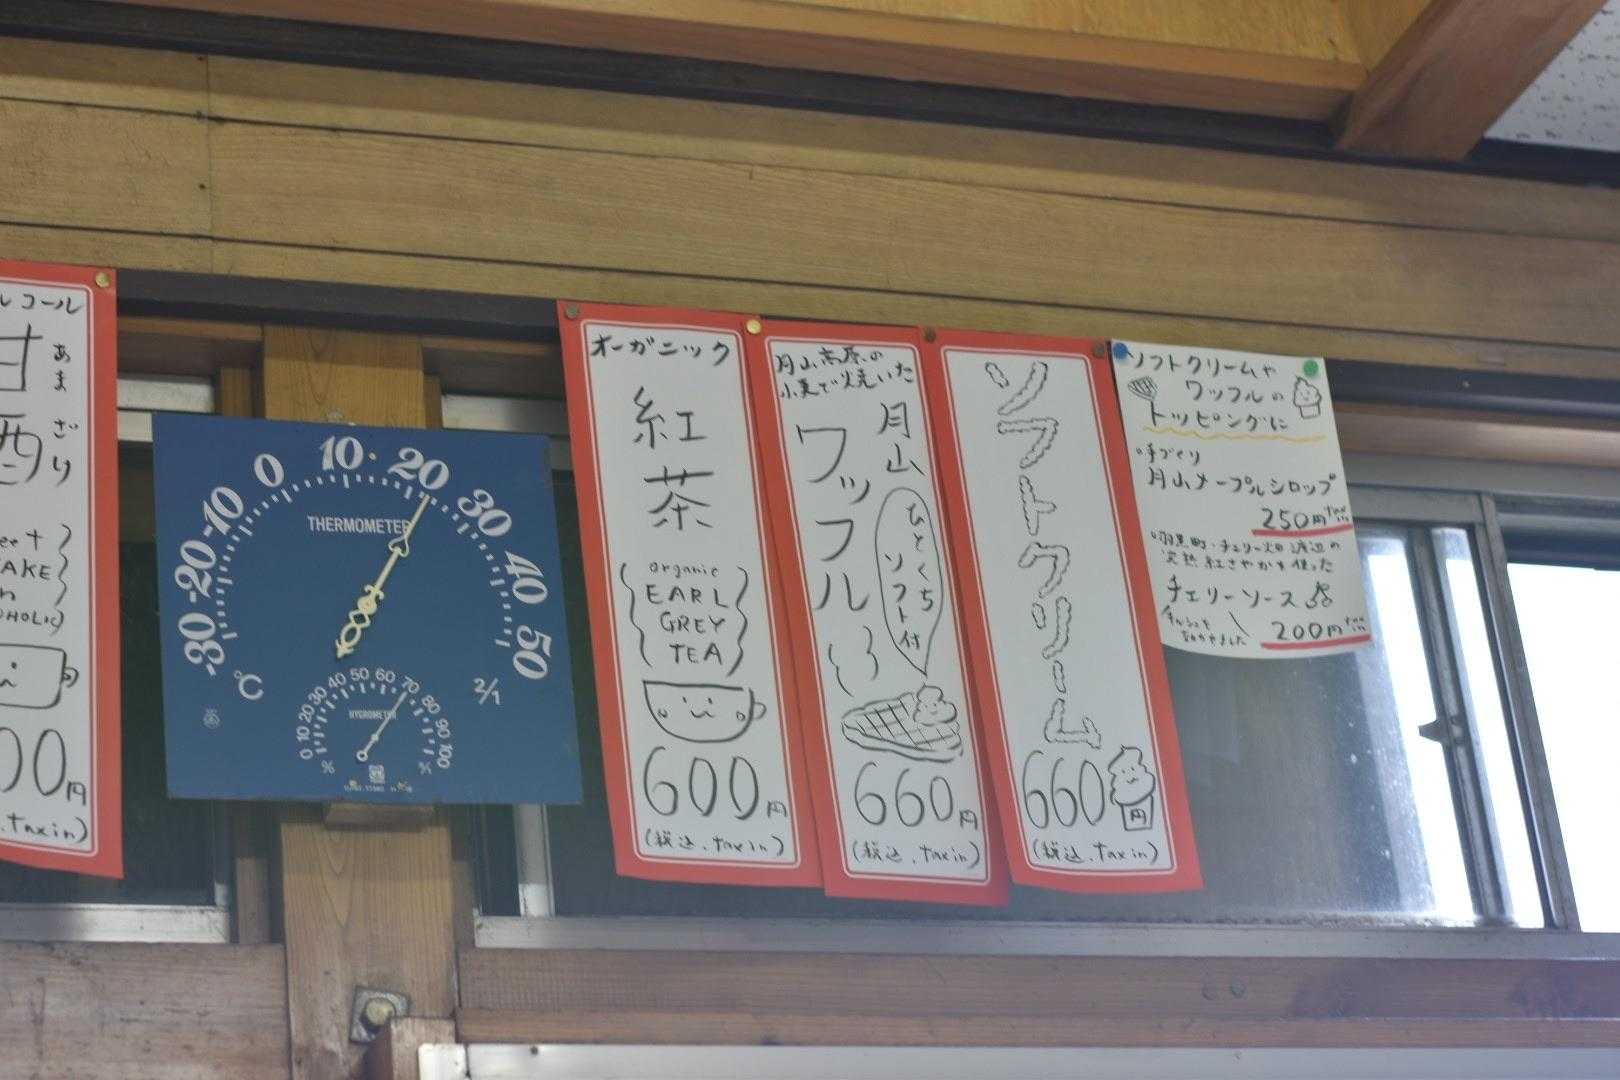 コール
甘酒
あまざけ
AKE
00円
.taxin)
-30 -20 -10 0 10 20 30 40 50
THERMOMETER
℃
2/1
0 10 20 30 40 50 60 70 80 90 100
HYGROMETER
% %
オーガニック
紅茶
organic
EARL
GREY
TEA
600円
(税込.taxin)
月山高原の
小麦で焼いた
月山
ワッフル
ひとくち
ソフト付
660円
(税込.taxin)
ソフトクリーム
660円
(税込.taxin)
ソフトクリームや
ワッフルの
トッピングに
手づくり
月山メープルシロップ
250円 tax in
羽黒町・チェリー畑 渡辺の
完熟 紅さやかを使った
チェリーソース
200円 tax in